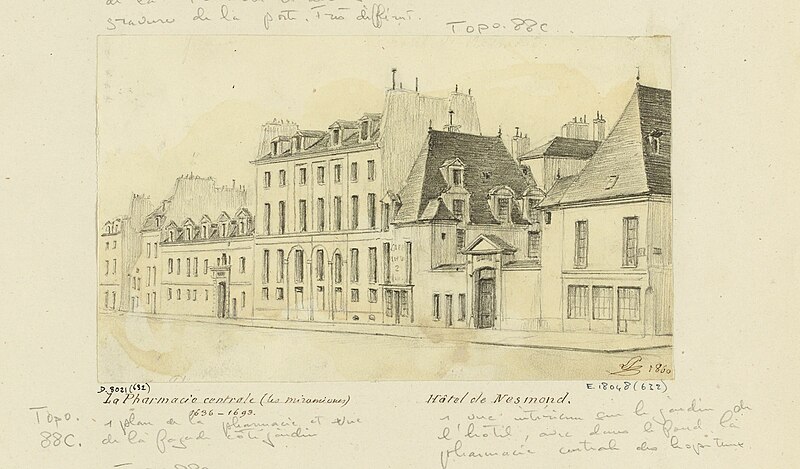 gravure de la porte. Très différent.
Topo. 88C.
1860
D. 9021 (632)
E. 18048 (632)
La Pharmacie centrale (les miramiones)
1636 - 1693.
Hôtel de Nesmond.
Topo.
88C.
1 plan de la pharmacie et vue
de la façade côté jardin
1 vue intérieure sur le jardin de
l'hôtel, avec dans le fond la
pharmacie centrale des hôpitaux